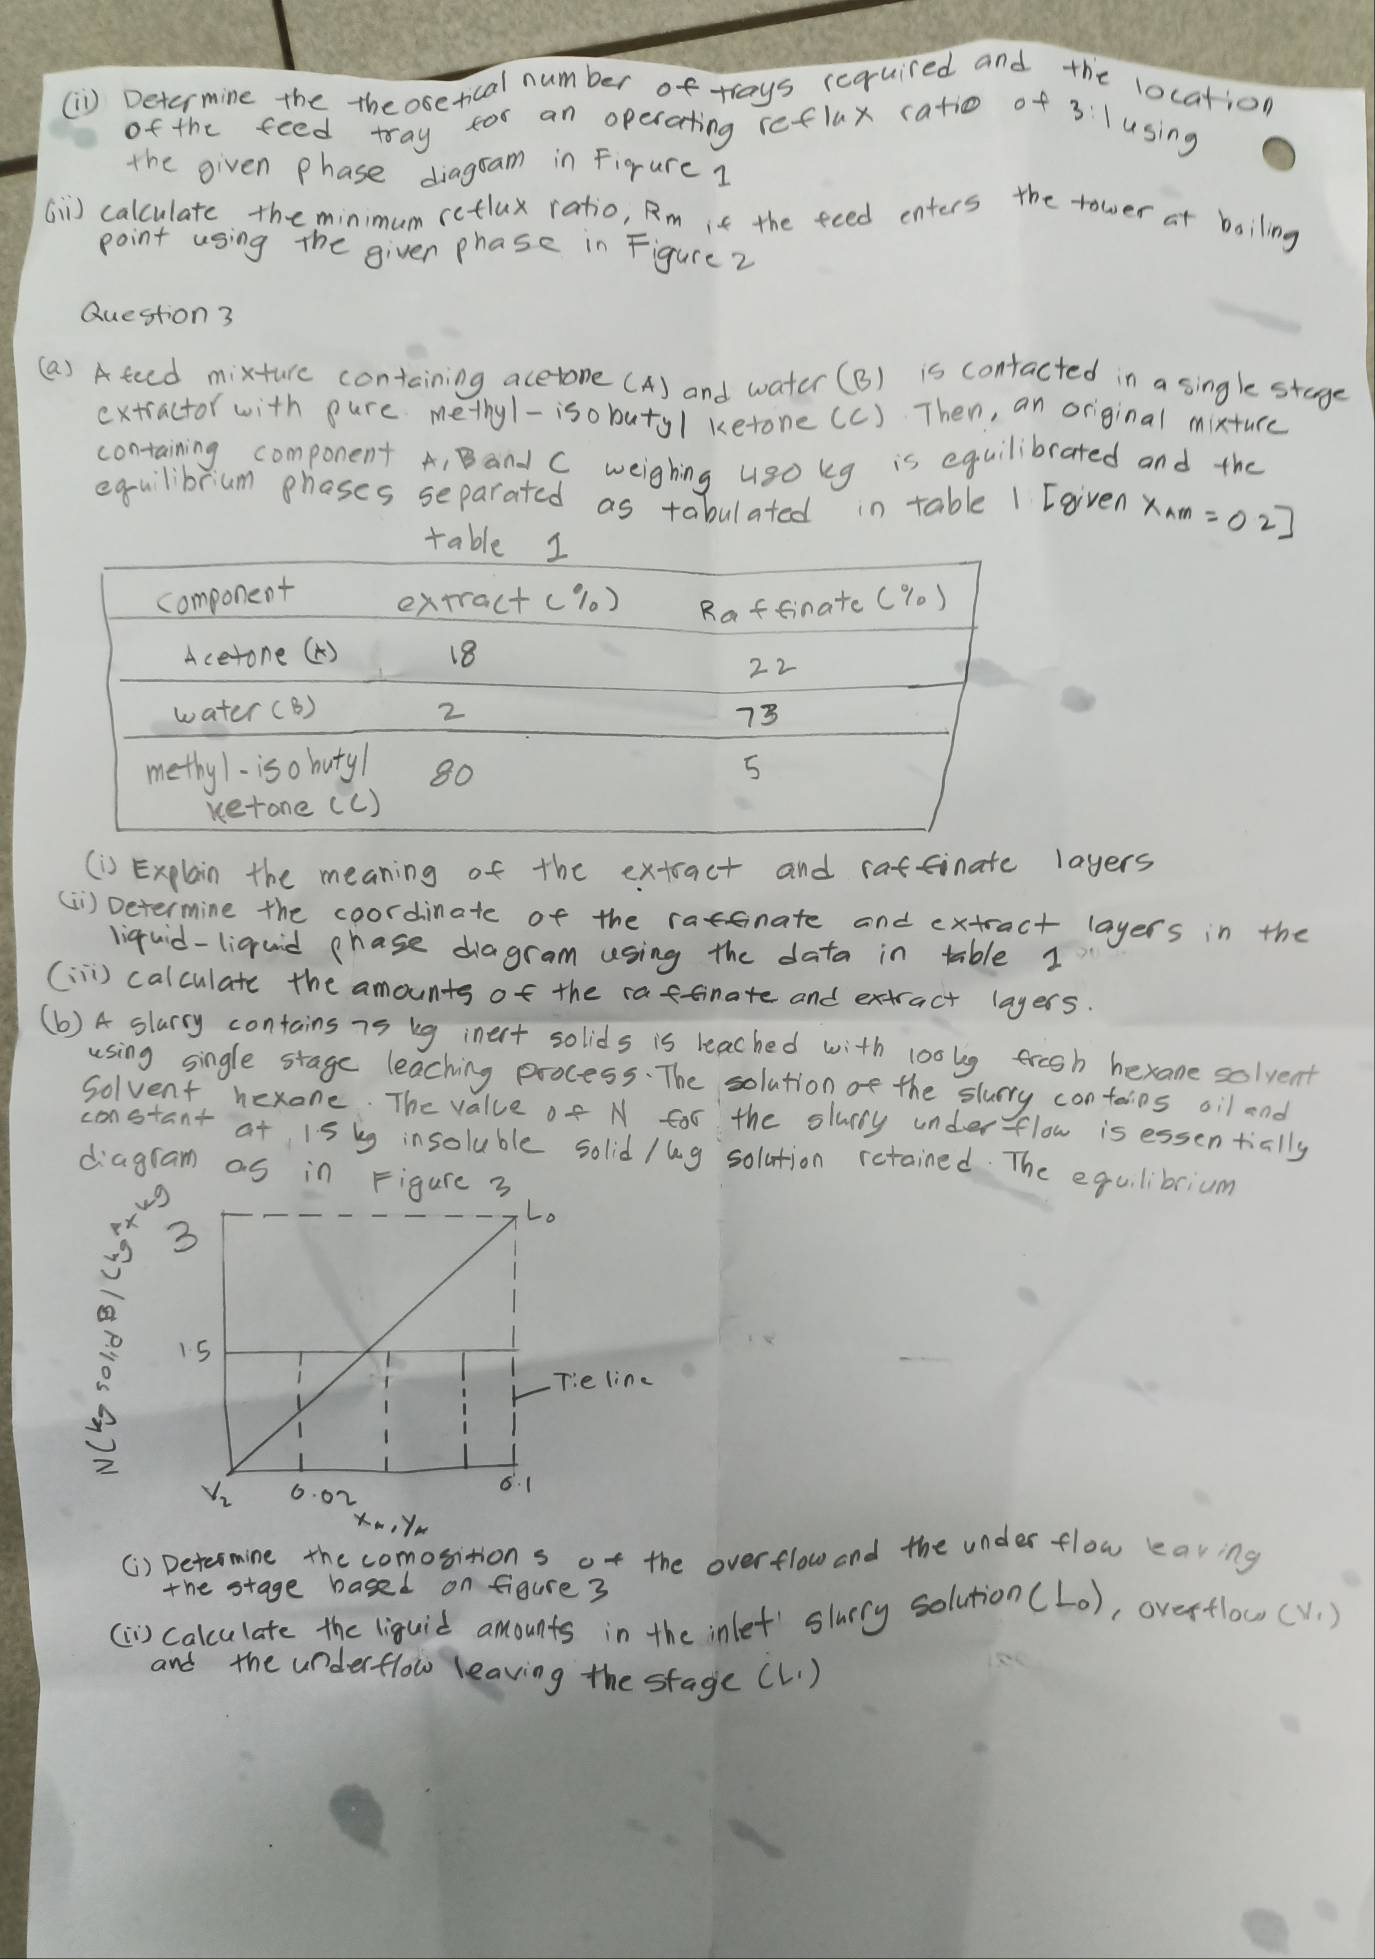 (ii) Determine the theoretical number of trays required and the location
of the feed tray for an operating reflux ratio of 3:1 using
the given phase diagram in Figure 1
(iii) calculate the minimum reflux ratio, Rm if the feed enters the tower at boiling
point using the given phase in Figure 2
Question 3
(a) A feed mixture containing acetone (A) and water (B) is contacted in a single stage
extractor with pure methyl-isobutyl ketone (C). Then, an original mixture
containing component A, B and C weighing 480 kg is equilibrated and the
equilibrium phases separated as tabulated in table 1 [given XAM = 0.2]
table 1
component extract (%) Raffinate (%)
Acetone (A) 18 22
water (B) 2 73
methyl-isobutyl 80 5
ketone (C)
(i) Explain the meaning of the extract and raffinate layers
(ii) Determine the coordinate of the raffinate and extract layers in the
liquid-liquid phase diagram using the data in table 1
(iii) calculate the amounts of the raffinate and extract layers.
(b) A slurry contains 75 kg inert solids is leached with 100 kg fresh hexane solvent
using single stage leaching process. The solution of the slurry contains oil and
solvent hexane. The value of N for the slurry underflow is essentially
constant at 1.5 kg insoluble solid/kg solution retained. The equilibrium
diagram as in Figure 3
N (kg solid B/(kg
3
L0
1.5
Tie line
V2 0.02 0.1
XA, YA
(i) Determine the comositions of the overflow and the under flow leaving
the stage based on figure 3
(ii) calculate the liquid amounts in the inlet slurry solution (L0), overflow (V1)
and the underflow leaving the stage (L1)